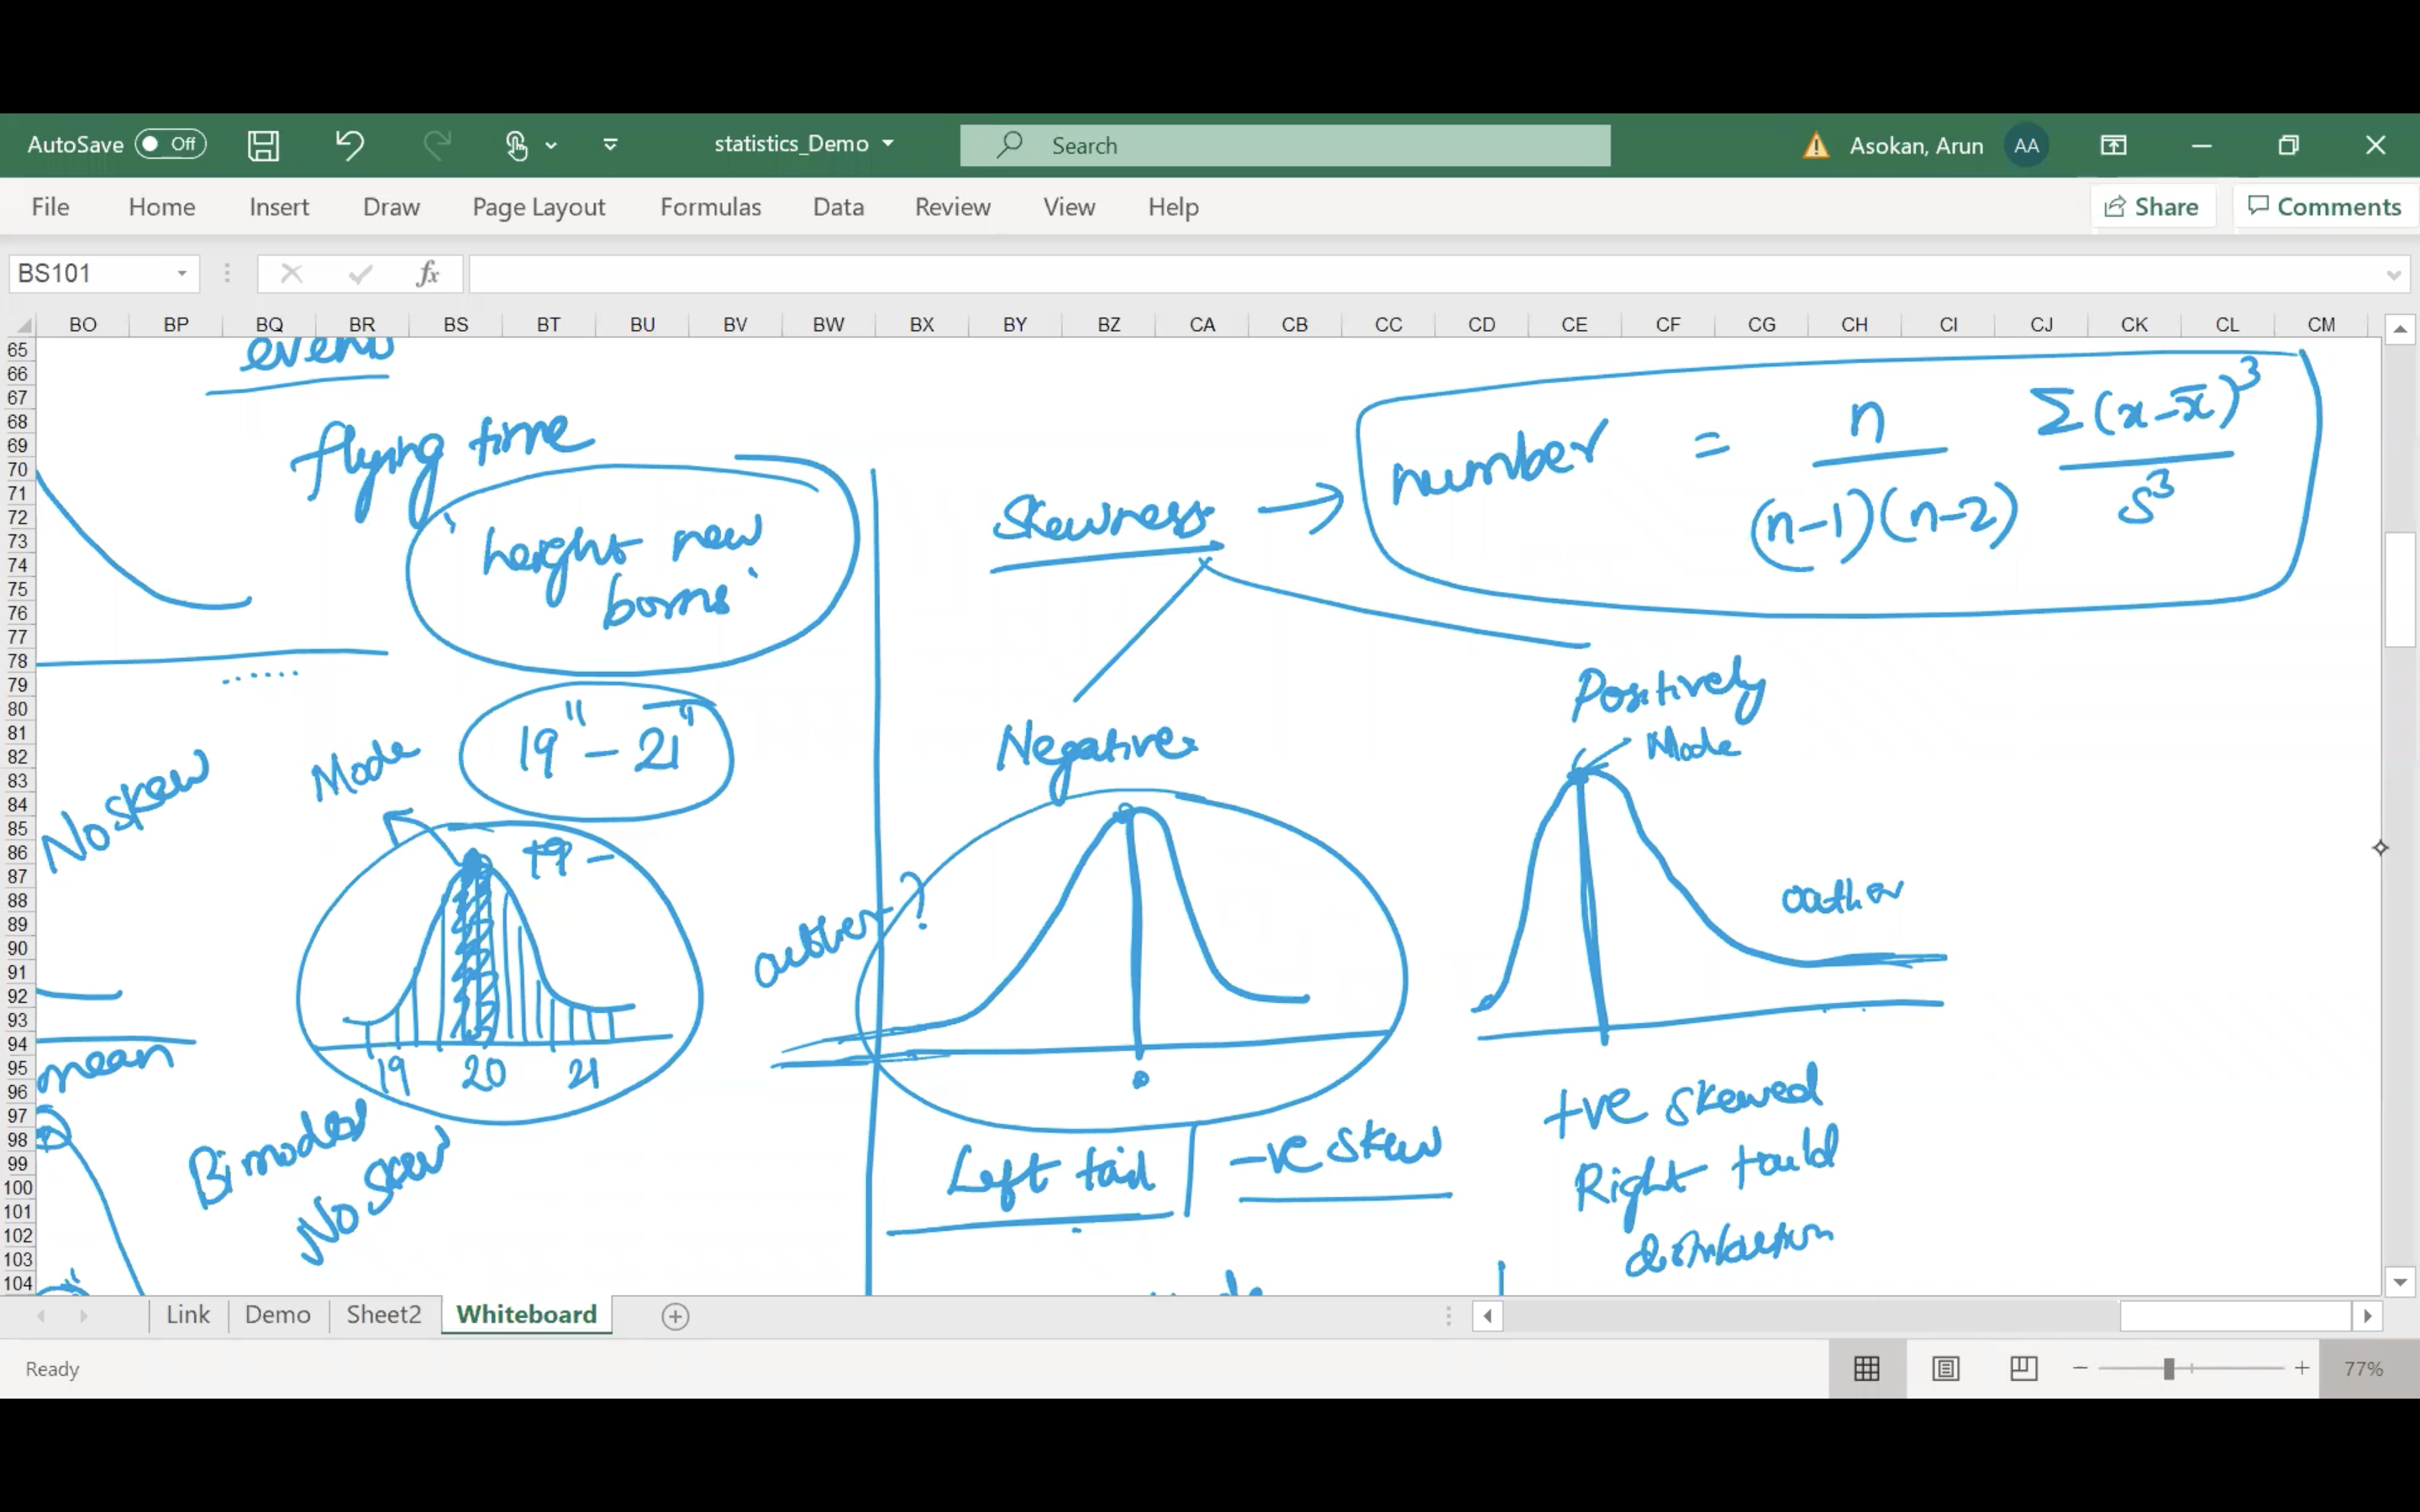 AutoSave Off statistics_Demo Search Asokan, Arun AA
File Home Insert Draw Page Layout Formulas Data Review View Help Share Comments
BS101 fx
BO BP BQ BR BS BT BU BV BW BX BY BZ CA CB CC CD CE CF CG CH CI CJ CK CL CM
65
66
67
68
69
70
71
72
73
74
75
76
77
78
79
80
81
82
83
84
85
86
87
88
89
90
91
92
93
94
95
96
97
98
99
100
101
102
103
104
flying time
height new
borns
19" - 21"
Mode
No skew
19 -
19 20 21
mean
Bimodal
No skew
Skewness → number = n / (n-1)(n-2) Σ(x-x̄)³ / s³
Negative
outlier ?
Left tail -ve skew
Positively
Mode
+ve skewed
Right
Link Demo Sheet2 Whiteboard
Ready 77%